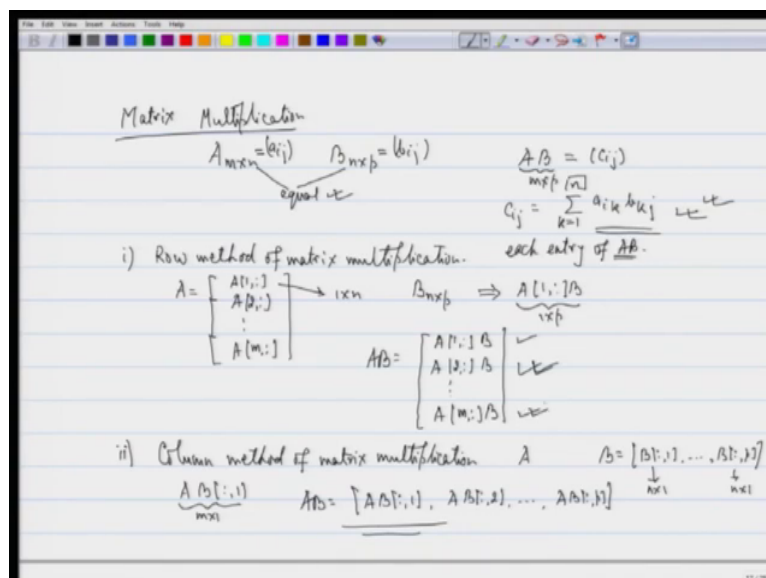 File Edit View Insert Actions Tools Help
Matrix Multiplication
A_{m×n} = (a_{ij}) B_{n×p} = (b_{ij})
equal
AB = (c_{ij})
m×p
c_{ij} = \sum_{k=1}^{n} a_{ik} b_{kj}
each entry of AB.
i) Row method of matrix multiplication.
A = [ A[1,:] A[2,:] ⋮ A[m,:] ] → 1×n B_{n×p} ⇒ A[1,:]B
1×p
AB = [ A[1,:]B A[2,:]B ⋮ A[m,:]B ]
ii) Column method of matrix multiplication A B = [B[:,1], ..., B[:,p]]
n×1 n×1
A B[:,1] AB = [A B[:,1], A B[:,2], ..., A B[:,p]]
m×1